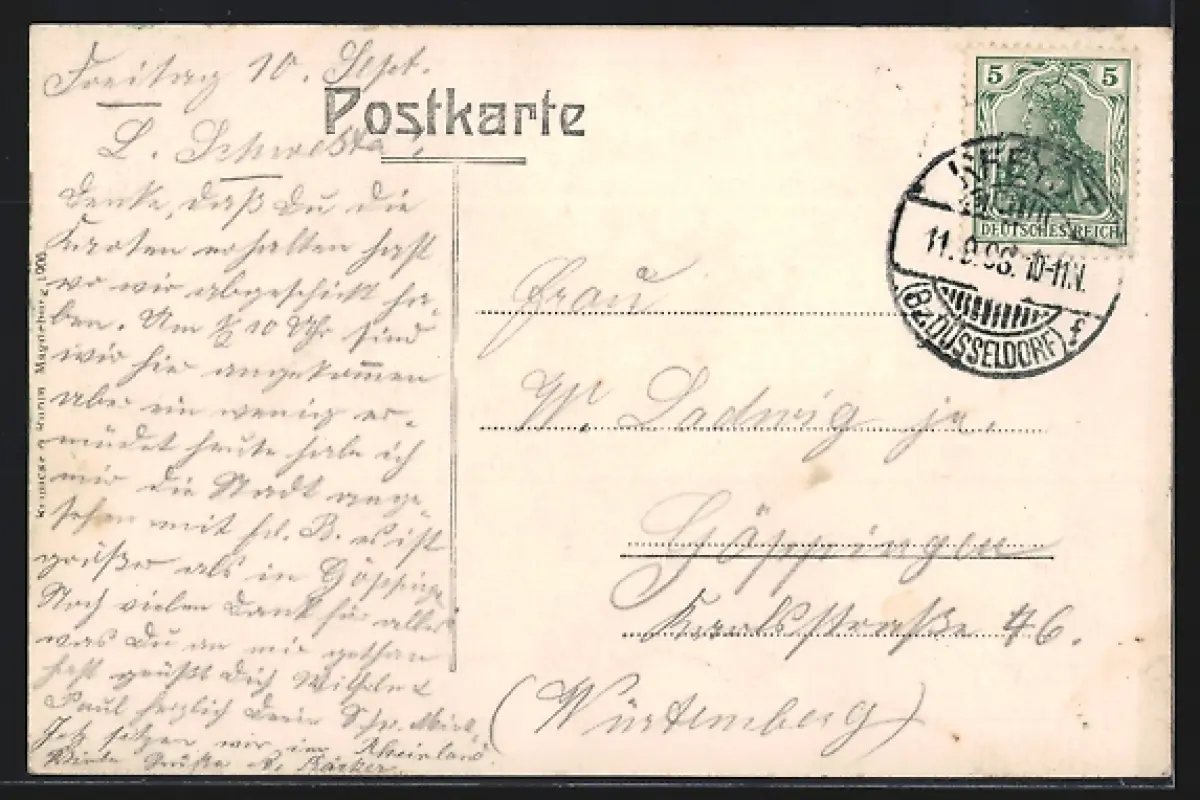 Freitag 10. Sept.
Postkarte
L. Schwester!
Denke, daß Du die
Karten erhalten hast
wo wir abgeschickt ha-
ben. Um ½ 10 Uhr sind
wir hier angekommen
aber ein wenig er-
müdet heute habe ich
mir die Stadt ange-
sehen mit frl. B. es ist
größer als in Göppinge
Noch vielen Dank für alles
was Du an mir gethan
hast grüßt Dich Wilhelm &
Paul herzlich Deine
Jetz sitzen wir im Rheinland
Viele Grüße
Magdeburg 1906
5 5
DEUTSCHES REICH
RHEYDT
11.9.06. 10-11.V.
(Bz. DÜSSELDORF) f
Frau
W. Ladwig jr.
Göppingen
Karlsstraße 46.
(Würtemberg)